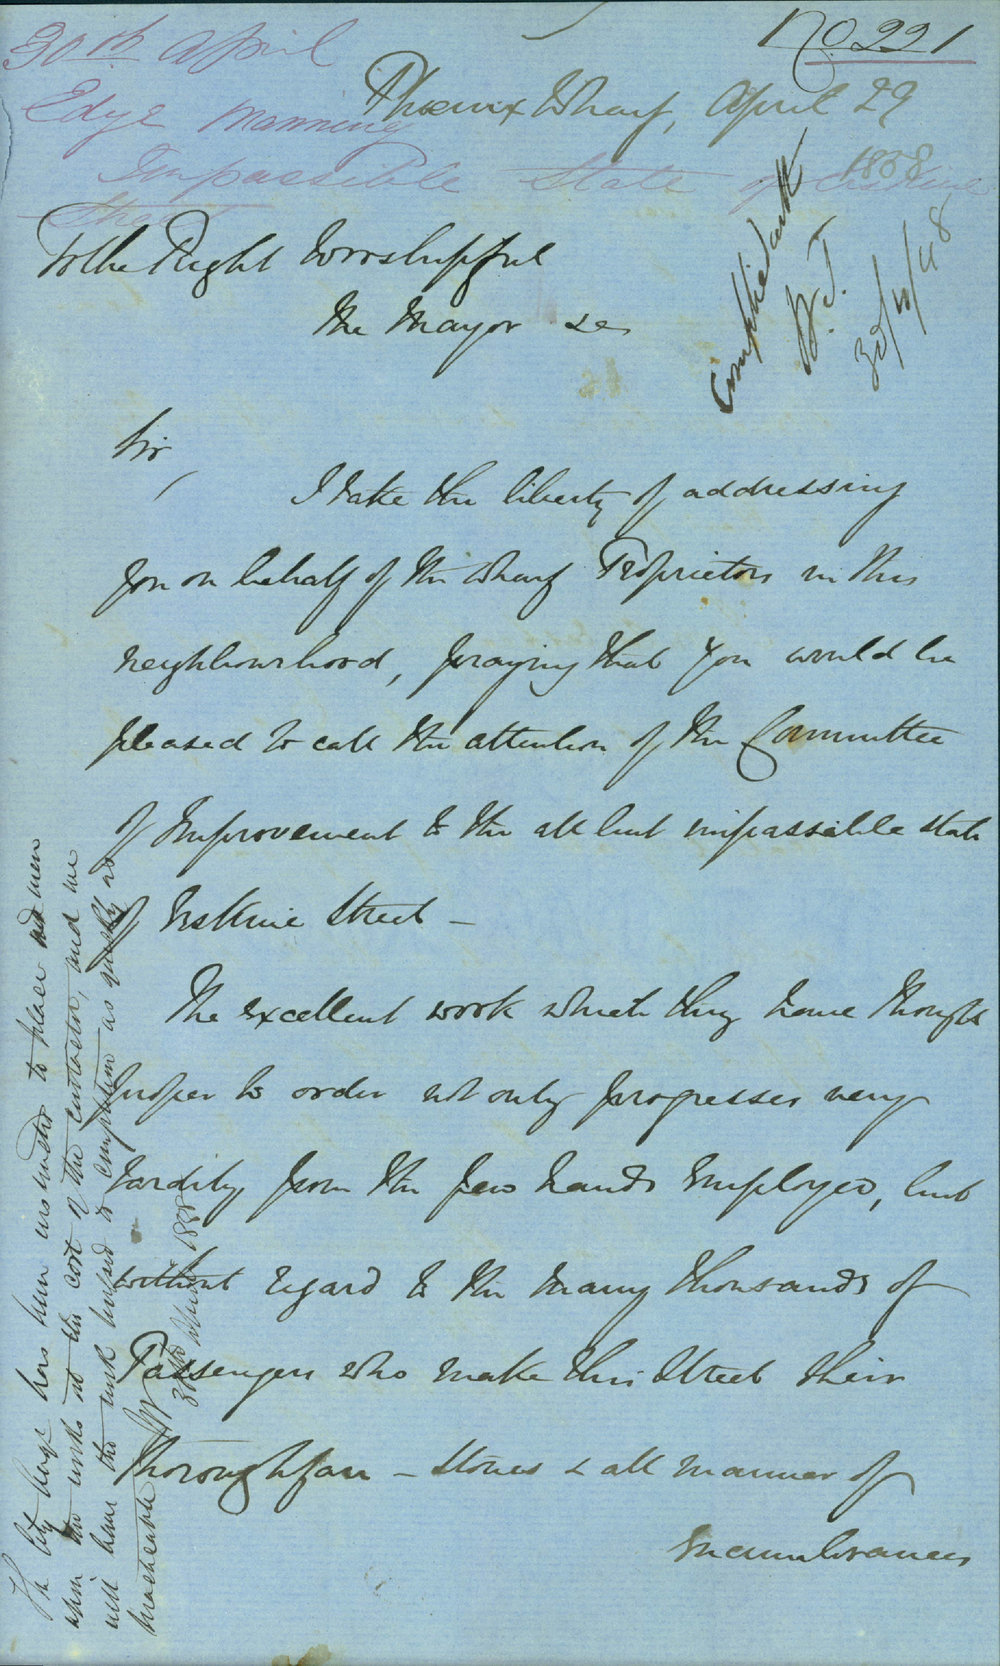 No. 221
30th April
Edye Manning
Impassible State of Erskine
Street
Phoenix Wharf, April 29
1858
Complied with
W.T.
To the Right Worshipful
The Mayor &c
Sir,
I take the liberty of addressing
you on behalf of the Wharf Proprietors in this
neighbourhood, praying that you would be
pleased to call the attention of the Committee
of Improvement to the all but impassible state
of Erskine Street –
The excellent work which they have thought
proper to order not only progresses very
tardily from the few hands employed, but
without regard to the many thousands of
Passengers who make this Street their
thoroughfare – stones & all manner of
Encumbrances
The City has been instructed to place men
upon the works at the cost of the contractor, and we
will have the work pushed to completion as quickly as
practicable
30th April 1858